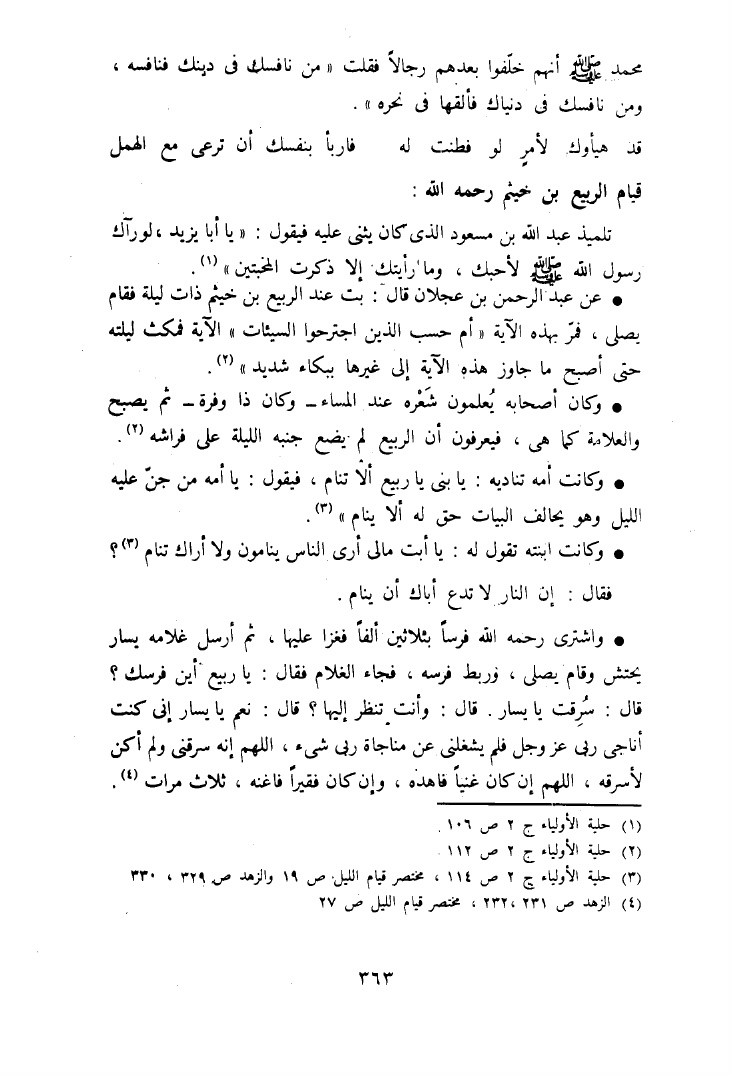 محمد ﷺ أنهم خلّفوا بعدهم رجالاً فقلت « من نافسك فى دينك فنافسه ،
ومن نافسك فى دنياك فألقها فى نحره » .
قد هيأوك لأمرٍ لو فطنت له فاربأ بنفسك أن ترعى مع الهمل
قيام الربيع بن خيثم رحمه الله :
تلميذ عبد الله بن مسعود الذى كان يثنى عليه فيقول : « يا أبا يزيد ، لو رآك
رسول الله ﷺ لأحبك ، وما رأيتك إلا ذكرت المخبتين » (١) .
● عن عبد الرحمن بن عجلان قال : بت عند الربيع بن خيثم ذات ليلة فقام
يصلى ، فمرّ بهذه الآية « أم حسب الذين اجترحوا السيئات » الآية فمكث ليلته
حتى أصبح ما جاوز هذه الآية إلى غيرها ببكاء شديد » (٢) .
● وكان أصحابه يُعلمون شَعْره عند المساء ــ وكان ذا وفرة ــ ثم يصبح
والعلامة كما هى ، فيعرفون أن الربيع لم يضع جنبه الليلة على فراشه (٢) .
● وكانت أمه تناديه : يا بنى يا ربيع ألا تنام ، فيقول : يا أمه من جنّ عليه
الليل وهو يخالف البيات حق له ألا ينام » (٣) .
● وكانت ابنته تقول له : يا أبت مالى أرى الناس ينامون ولا أراك تنام (٣) ؟
فقال : إن النار لا تدع أباك أن ينام .
● واشترى رحمه الله فرساً بثلاثين ألفاً فغزا عليها ، ثم أرسل غلامه يسار
يحتش وقام يصلى ، وربط فرسه ، فجاء الغلام فقال : يا ربيع أين فرسك ؟
قال : سُرقت يا يسار . قال : وأنت تنظر إليها ؟ قال : نعم يا يسار إنى كنت
أناجى ربى عز وجل فلم يشغلنى عن مناجاة ربى شىء ، اللهم إنه سرقنى ولم أكن
لأسرقه ، اللهم إن كان غنياً فاهده ، وإن كان فقيراً فاغنه ، ثلاث مرات (٤) .
(١) حلية الأولياء ج ٢ ص ١٠٦ .
(٢) حلية الأولياء ج ٢ ص ١١٢
(٣) حلية الأولياء ج ٢ ص ١١٤ ، مختصر قيام الليل ص ١٩ والزهد ص ٣٢٩ ، ٣٣٠
(٤) الزهد ص ٢٣١ ، ٢٣٢ ، مختصر قيام الليل ص ٢٧
٣٦٣